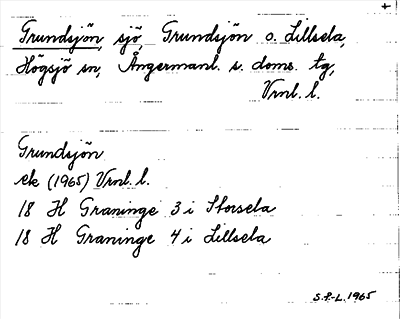 +
Grundsjön, sjö, Grundsjön o. Lillsela,
Högsjö sn, Ångermanl. s. doms. tg,
Vrnl. l.
Grundsjön
ek (1965) Vrnl. l.
18 H Graninge 3 i Storsela
18 H Graninge 4 i Lillsela
S.F.-L. 1965